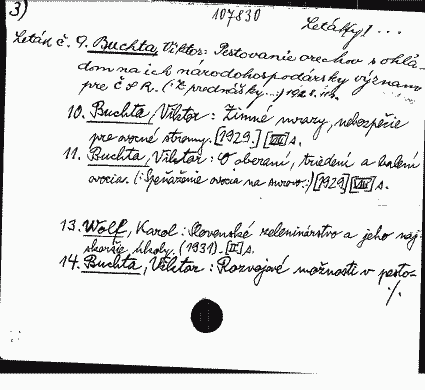 3)
107830
Letáky! ...
Leták č. 9. Buchta, Viktor: Pestovanie orechov s ohľa-
dom na ich národohospodársky význam
pre ČSR. (: Z prednášky...:)
10. Buchta, Viktor: Zimné mrazy, nebezpečie
pre ovocné stromy. [1929.] [VIII] s.
11. Buchta, Viktor: O oberaní, triedení a balení
ovocia. (: Speňaženie ovocia na surovo:) [1929] [VIII] s.
13. Wolf, Karol: Slovenské zeleninárstvo a jeho naj-
skoršie úkoly. (1931). [II] s.
14. Buchta, Viktor: Rozvojové možnosti v pesto-
./.